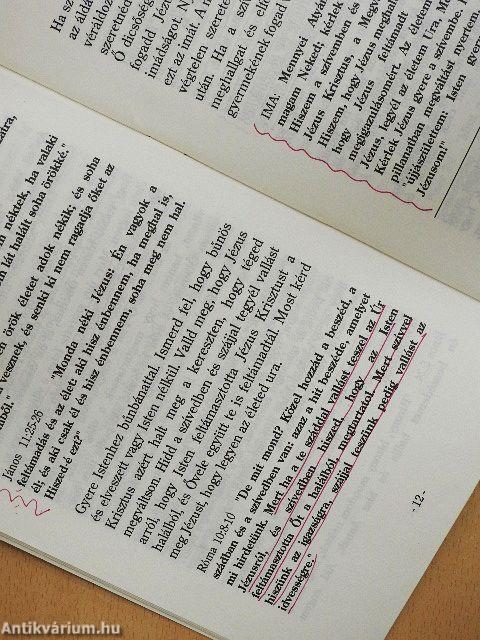 Ha sz
az áldá
szeretném
véráldoza
Ő dicsőség
fogadd Jézu
imádságot. N
ezt az imát. A m
végtelen szerete
után. Ha a szív
meghallgat és elf
gyermekének fogad
IMA: Mennyei Atyám
magam Neked; kérlek
Hiszem a szívemben és
Jézus Krisztus, a Megv
Hiszem, hogy Jézus meghalt
hogy Jézus feltámadt a
megigazulásomért. Az életem
Jézus, legyél az életem Ura, Má
Kérlek Jézus gyere a szívembe. E
pillanatban megváltást nyertem,
"újjászülettem: Isten gyer
Jézusom!"
nektek, ha valaki
lát halált soha örökké."
örök életet adok nékik; és soha
vesznek, és senki ki nem ragadja őket az
János 11:25-26 "Monda néki Jézus: Én vagyok a
feltámadás és az élet: aki hisz énbennem, ha meghal is,
él; és aki csak él és hisz énbennem, soha meg nem hal.
Hiszed-é ezt?"
Gyere Istenhez bűnbánattal. Ismerd fel, hogy bűnös
és elveszett vagy Isten nélkül. Valld meg, hogy Jézus
Krisztus azért halt meg a kereszten, hogy téged
megváltson. Hidd a szívedben és száljal tégyél vallást
arról, hogy Isten feltámasztotta Jézus Krisztust a
halálból, és Övele együtt te is feltámadtál. Most kérd
meg Jézust, hogy legyen az életed ura.
Róma 10:8-10 "De mit mond? Közel hozzád a beszéd, a
szádban és a szívedben van: azaz a hit beszéde, amelyet
mi hirdetünk. Mert ha a te száddal vallást teszel az Úr
Jézusról, és szívedben hiszed, hogy az Isten
feltámasztotta Őt a halálból, megtartatol. Mert szívvel
hiszünk az igazságra, szájjal teszünk pedig vallást az
idvességre."
-12-
Antikvárium.hu